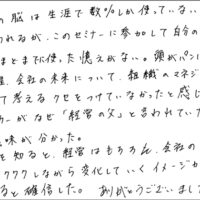 の脳は生涯で数%しか使っていない
われるが、このセミナーに参加して自分の
まともに使った憶えがない。頭がパン
、会社の未来について、組織のマネジ
て考えるクセをつけていなかったと感じ
カーがなぜ「経営の父」と言われていた
味が分かった。
を知ると、経営はもちろん、会社の
クワクしながら変化していくイメージが
ると確信した。ありがとうございまし